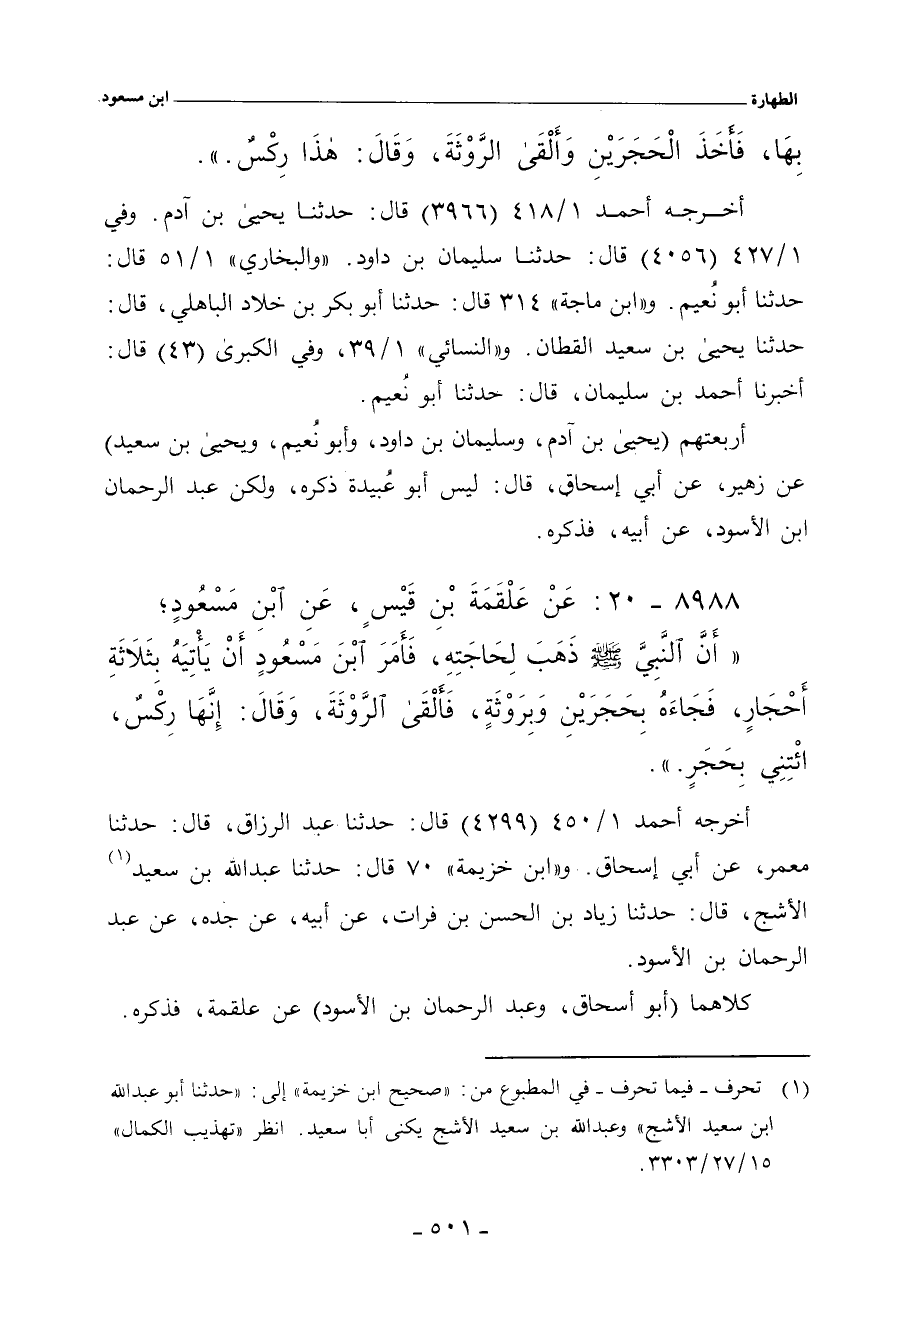 الطهارة ـــــــــــــــــــــــــــــــــــــــــــــــــــــــــــــــــــ ابن مسعود
بِهَا، فَأَخَذَ الْحَجَرَيْنِ وَأَلْقَىٰ الرَّوْثَةَ، وَقَالَ: هٰذَا رِكْسٌ.».
أخـرجـه أحمـد ٤١٨/١ (٣٩٦٦) قال: حدثنـا يحيىٰ بن آدم. وفي
٤٢٧/١ (٤٠٥٦) قال: حدثنـا سليمان بن داود. «والبخاري» ٥١/١ قال:
حدثنا أبو نُعيم. و«ابن ماجة» ٣١٤ قال: حدثنا أبو بكر بن خلاد الباهلي، قال:
حدثنا يحيىٰ بن سعيد القطان. و«النسائي» ٣٩/١، وفي الكبرىٰ (٤٣) قال:
أخبرنا أحمد بن سليمان، قال: حدثنا أبو نُعيم.
أربعتهم (يحيىٰ بن آدم، وسليمان بن داود، وأبو نُعيم، ويحيىٰ بن سعيد)
عن زهير، عن أبي إسحاق، قال: ليس أبو عُبيدة ذكره، ولكن عبد الرحمان
ابن الأسود، عن أبيه، فذكره.
٨٩٨٨ ـ ٢٠: عَنْ عَلْقَمَةَ بْنِ قَيْسٍ، عَنِ ٱبْنِ مَسْعُودٍ؛
« أَنَّ ٱلنَّبِيَّ ﷺ ذَهَبَ لِحَاجَتِهِ، فَأَمَرَ ٱبْنَ مَسْعُودٍ أَنْ يَأْتِيَهُ بِثَلَاثَةِ
أَحْجَارٍ، فَجَاءَهُ بِحَجَرَيْنِ وَبِرَوْثَةٍ، فَأَلْقَىٰ ٱلرَّوْثَةَ، وَقَالَ: إِنَّهَا رِكْسٌ،
ائْتِنِي بِحَجَرٍ.».
أخرجه أحمد ٤٥٠/١ (٤٢٩٩) قال: حدثنا عبد الرزاق، قال: حدثنا
معمر، عن أبي إسحاق. و«ابن خزيمة» ٧٠ قال: حدثنا عبدالله بن سعيد(١)
الأشج، قال: حدثنا زياد بن الحسن بن فرات، عن أبيه، عن جده، عن عبد
الرحمان بن الأسود.
كلاهما (أبو أسحاق، وعبد الرحمان بن الأسود) عن علقمة، فذكره.
(١) تحرف ـ فيما تحرف ـ في المطبوع من: «صحيح ابن خزيمة» إلى: «حدثنا أبو عبدالله
ابن سعيد الأشج» وعبدالله بن سعيد الأشج يكنى أبا سعيد. انظر «تهذيب الكمال»
٣٣٠٣/٢٧/١٥.
ـ ٥٠١ ـ